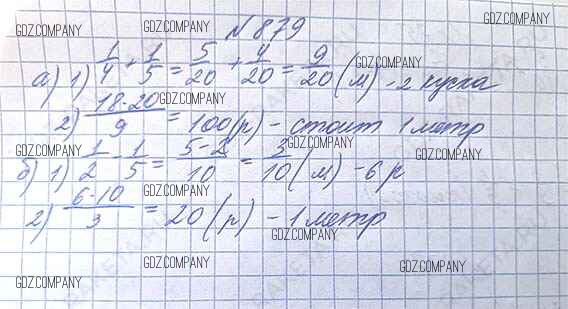 № 879
а) 1) 1/4 + 1/5 = 5/20 + 4/20 = 9/20 (м) - 2 куска
2) 18·20/9 = 100 (р) - стоит 1 метр
б) 1) 1/2 - 1/5 = 5-2/10 = 3/10 (м) - 6 р
2) 6·10/3 = 20 (р) - 1 метр
GDZ.COMPANY
GDZ.COMPANY
GDZ.COMPANY
GDZ.COMPANY
GDZ.COMPANY
GDZ.COMPANY
GDZ.COMPANY
GDZ.COMPANY
GDZ.COMPANY
GDZ.COMPANY
GDZ.COMPANY
GDZ.COMPANY